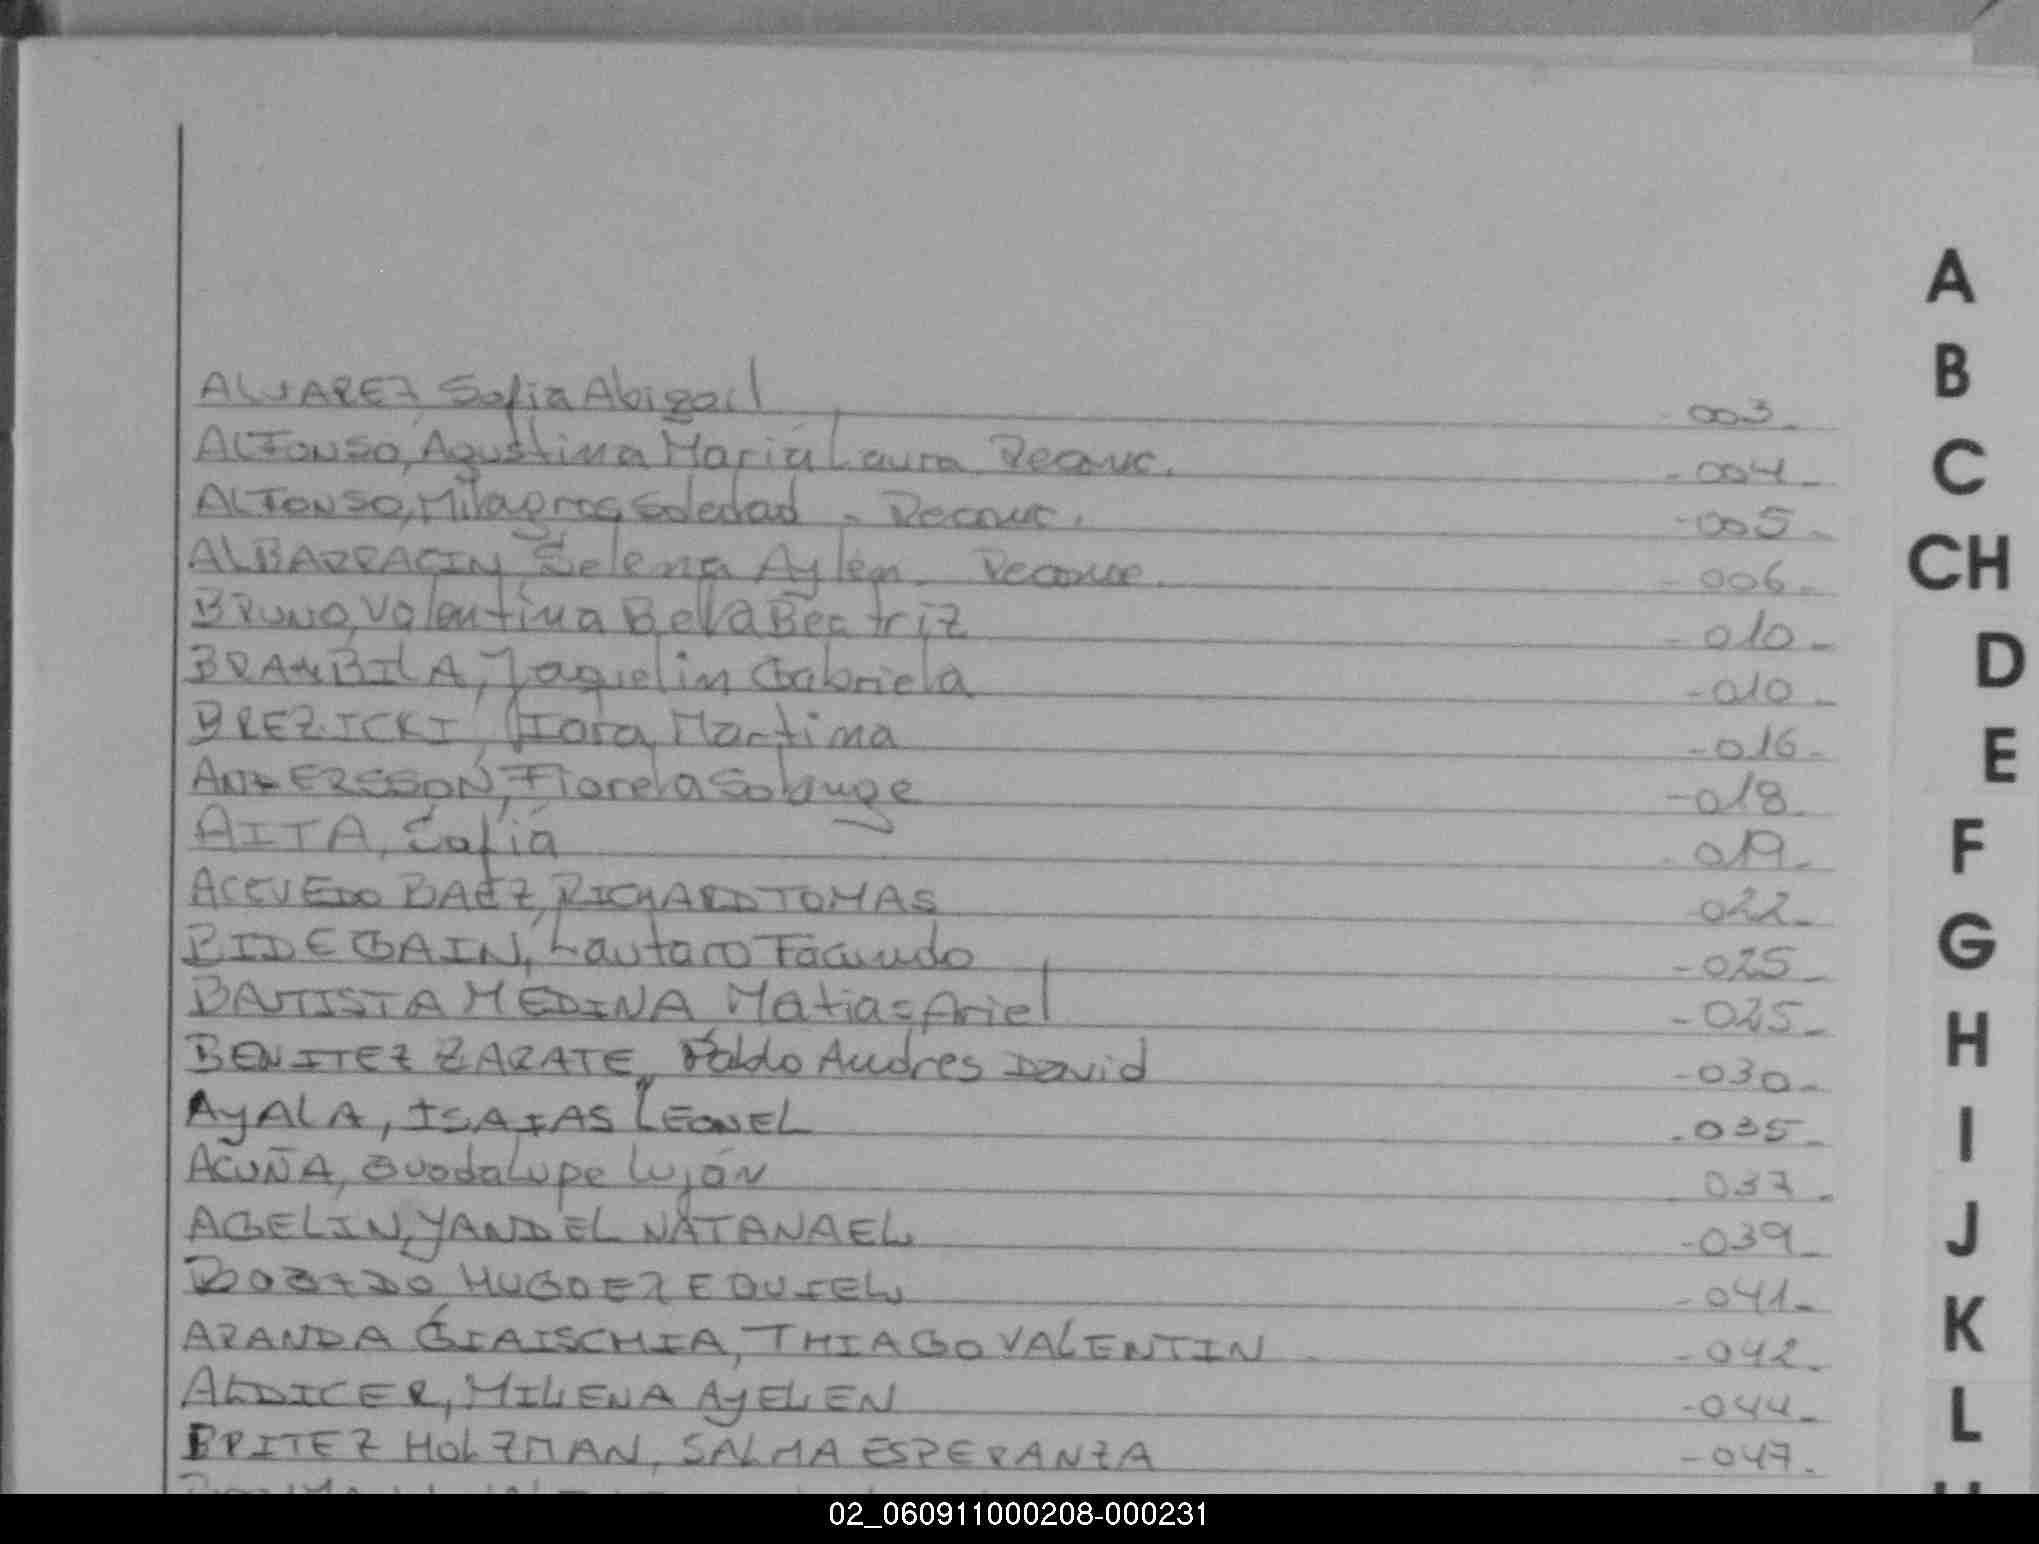 ALVAREZ Sofia Abigail 003-
ALFONSO, Agustina Maria Laura Reconoc. -004-
ALFONSO, Milagros Soledad - Reconoc. -005-
ALBARRACIN, Selena Aylén - Reconoc. -006-
BRUNO, Valentina Bella Beatriz -010-
BRAMBILA, Jaquelin Gabriela -010-
BREZICKI, Iara Martina -016-
ANDERSSON, Fiorela Solange -018-
AITA, Sofía -019-
ACEVEDO BAEZ, RICHARD TOMAS -022-
BIDEGAIN, Lautaro Facundo -025-
BATISTA MEDINA Matias Ariel -025-
BENITEZ ZARATE, Pablo Andres David -030-
AyALA, ISAIAS LEONEL -035-
ACUÑA, Guadalupe Luján 037-
AGELIN, YANDEL NATANAEL -039-
BOBADO HUGO EZEQUIEL -041-
ARANDA GIAISCHIA, THIAGO VALENTIN -042-
ALDICER, MILENA AyELEN -044-
BRITEZ HOLZMAN, SALMA ESPERANZA -047-
A
B
C
CH
D
E
F
G
H
I
J
K
L
02_060911000208-000231